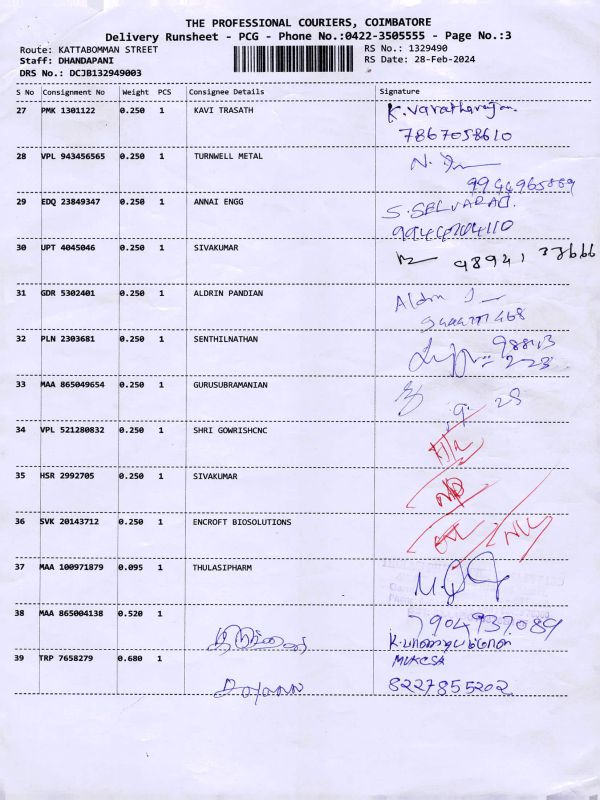 THE PROFESSIONAL COURIERS, COIMBATORE
Delivery Runsheet - PCG - Phone No.:0422-3505555 - Page No.:3
Route: KATTABOMMAN STREET RS No.: 1329490
Staff: DHANDAPANI RS Date: 28-Feb-2024
DRS No.: DCJB132949003
S No Consignment No Weight PCS Consignee Details Signature
27 PMK 1301122 0.250 1 KAVI TRASATH K.Varatharajan
7867058610
28 VPL 943456565 0.250 1 TURNWELL METAL
9944965889
29 EDQ 23849347 0.250 1 ANNAI ENGG S.SELVARAJ.
30 UPT 4045046 0.250 1 SIVAKUMAR
31 GDR 5302401 0.250 1 ALDRIN PANDIAN Aldrin
32 PLN 2303681 0.250 1 SENTHILNATHAN
33 MAA 865049654 0.250 1 GURUSUBRAMANIAN
34 VPL 521280832 0.250 1 SHRI GOWRISHCNC
35 HSR 2992705 0.250 1 SIVAKUMAR
36 SVK 20143712 0.250 1 ENCROFT BIOSOLUTIONS
37 MAA 100971879 0.095 1 THULASIPHARM
38 MAA 865004138 0.520 1 7904937089
39 TRP 7658279 0.680 1
8227855202